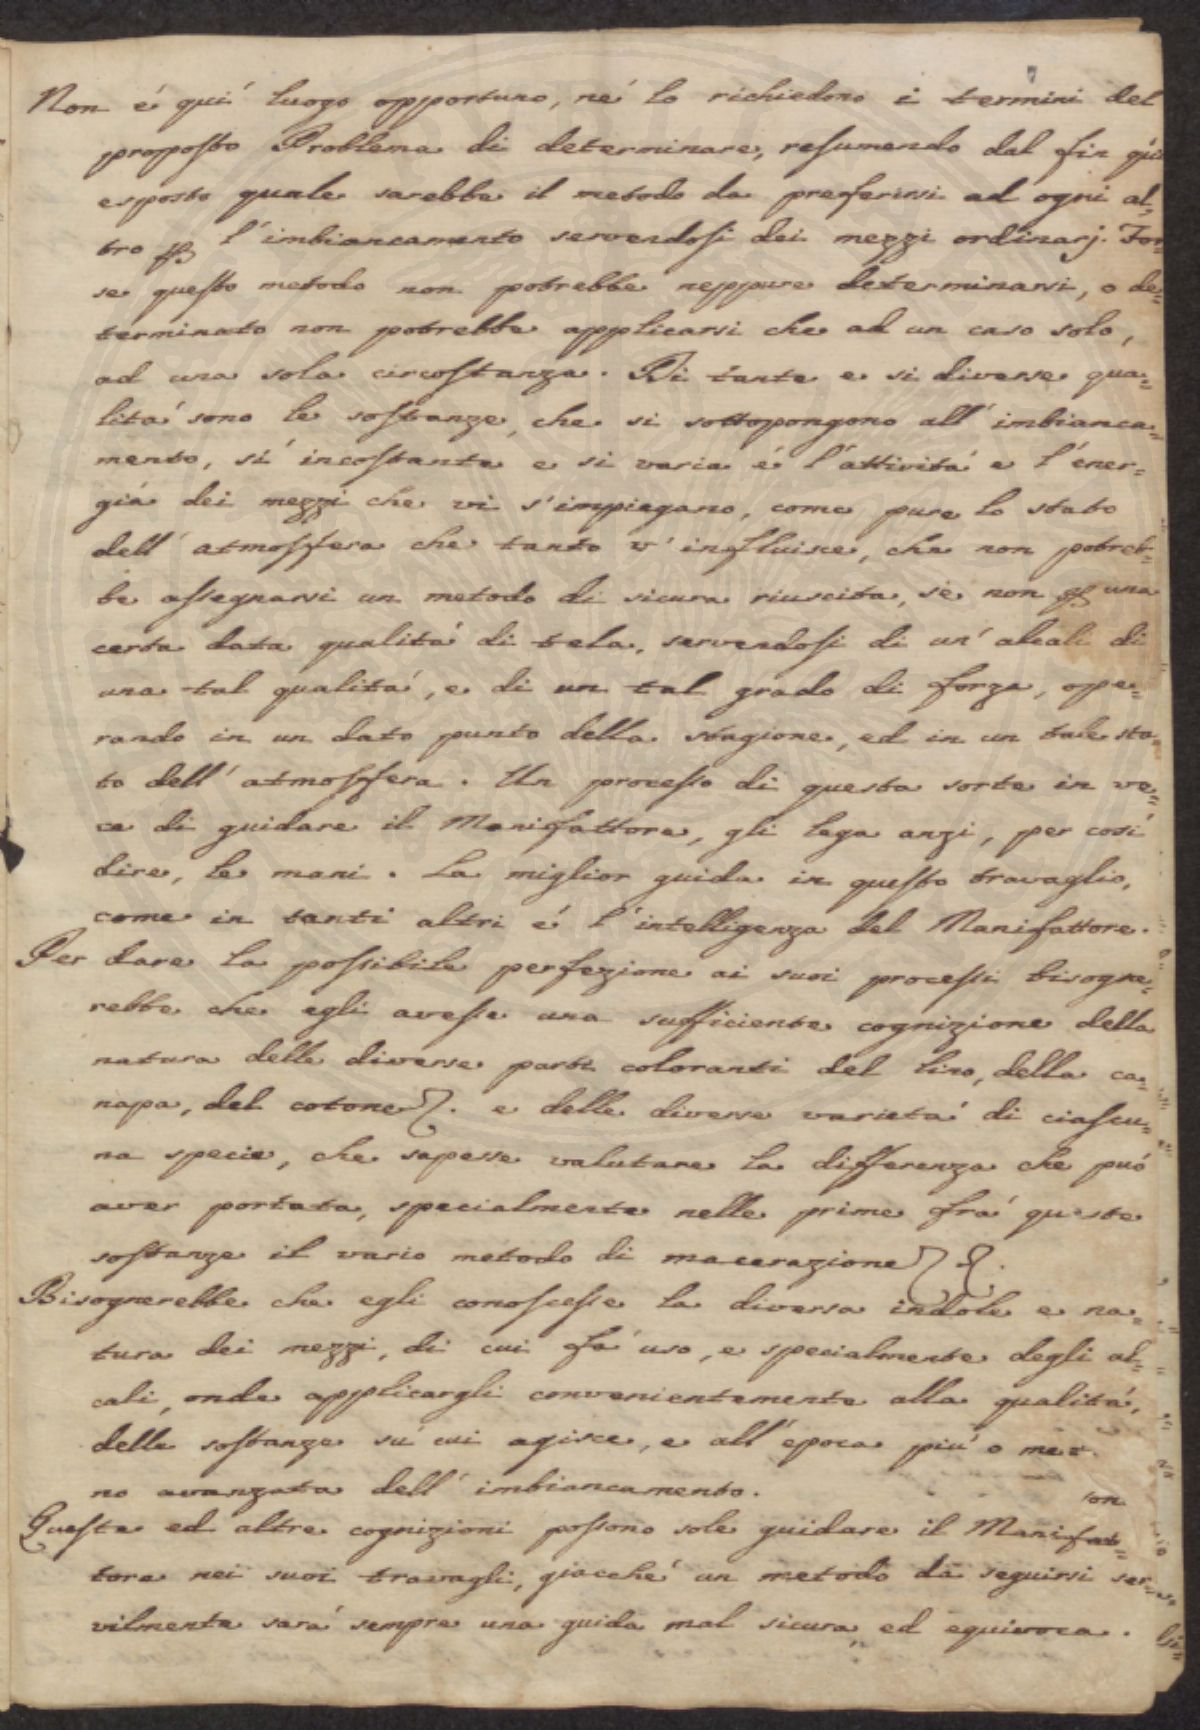 Non é qui luogo opportuno, né lo richiedono i termini del
proposto Problema di determinare, resumendo dal fin qui
esposto quale sarebbe il metodo da preferirsi ad ogni al-
tro ꝑ l'imbiancamento servendosi dei mezzi ordinarj. For-
se questo metodo non potrebbe neppure determinarsi, o de-
terminato non potrebbe applicarsi che ad un caso solo,
ad una sola circostanza. Di tante e si diverse qua-
litá sono le sostanze, che si sottopongono all'imbianca-
mento, sí incostante e si varia é l'attivitá e l'ener-
giá dei mezzi che vi s'impiegano, come pure lo stato
dell'atmosfera che tanto v'influisce, che non potreb-
be assegnarsi un metodo di sicura riuscita, se non ꝑ una
certa data qualitá di tela, servendosi di un'alcali di
una tal qualitá, e di un tal grado di forza, ope-
rando in un dato punto della stagione, ed in un tale sta-
to dell'atmosfera. Un processo di questa sorte in ve-
ce di guidare il Manifattore, gli lega anzi, per cosí
dire, le mani. La miglior guida in questo travaglio,
come in tanti altri é l'intelligenza del Manifattore.
Per dare la possibile perfezione ai suoi processi bisogne-
rebbe che egli avesse una sufficiente cognizione della
natura delle diverse parti coloranti del lino, della ca-
napa, del cotone &. e delle diverse varietá di ciascu-
na specie, che sapesse valutare la differenza che puó
aver portata, specialmente nelle prime frá queste
sostanze il vario metodo di macerazione & &.
Bisognerebbe che egli conoscesse la diversa indole e na-
tura dei mezzi, di cui fá uso, e specialmente degli al-
cali, onde applicargli convenientemente alla qualitá,
delle sostanze sú cui agisce, e all'epoca piú o me-
no avanzata dell'imbiancamento.
Queste ed altre cognizioni possono sole guidare il Manifat-
tore nei suoi travagli, giacché un metodo da seguirsi ser-
vilmente sará sempre una guida mal sicura, ed equivoca.